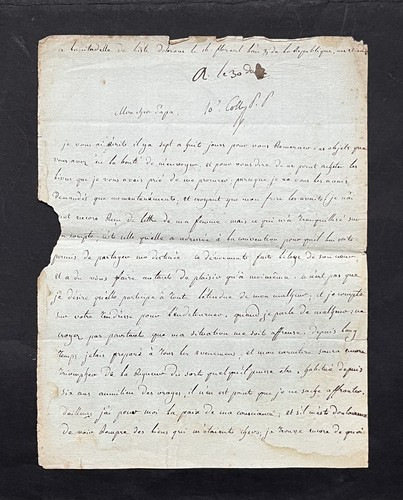 a la citadelle de l'isle d'oleron le 16 floreal l'an 3 de la Republique, une et
R. le 30 du
Mon cher Papa, 10.
je vous ai écrit il y a sept a huit jours pour vous remercier des objets que
vous avez eu la bonté de m'envoyer, et pour vous dire de ne point acheter les
livres que je vous avais prié de me procurer, parceque je ne vous les avais
demandés que momentanément, et croyant que mon frere les avait; je n'ai
encore rien de lettre de ma femme, mais ce qui m'a tranquillisé sur
compte c'est celle quelle a adressée a la convention pour qu'il lui soit
permis de partager ma destinée. ce dévouement fait l'éloge de son cœur,
et a dû vous faire autant de plaisir qu'a moi même. ce n'est pas que
je désire quelle participe a toute l'étendue de mon malheur; et je compte
sur votre tendresse pour l'en détourner. quand je parle de malheur, ne
croyez pas pourtant que ma situation me soit affreuse, depuis long
temps j'etais preparé a tous les evenemens, et mon caractere saura encore
triompher de la rigueur du sort quel qu'il puisse etre. habitué depuis
six ans au milieu des orages, il n'en est point que je ne sache affronter,
d'ailleurs j'ai pour moi la paix de ma conscience; et s'il m'est douloureux
de voir rompre des liens qui m'etaient chers, je trouve encore de quoi